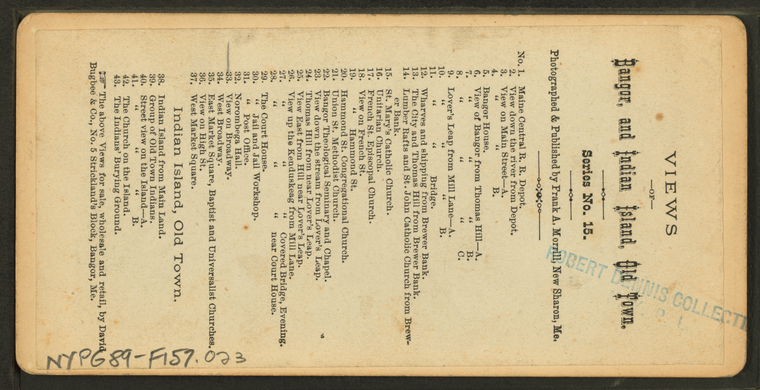 VIEWS
—OF—
Bangor, and Indian Island, Old Town.
Series No. 15.
Photographed & Published by Frank A. Morrill, New Sharon, Me.
No. 1. Maine Central R. R. Depot.
2. View down the river from Depot.
3. View on Main Street—A.
4. " " " B.
5. Bangor House.
6. View of Bangor from Thomas Hill—A.
7. " " " " B.
8. " " " " C.
9. Lover's Leap from Mill Lane—A.
10. " " " " B.
11. " " " Bridge.
12. Wharves and shipping from Brewer Bank.
13. The City and Thomas Hill from Brewer Bank.
14. Lumber Rafts and St. John Catholic Church from Brew-
er Bank.
15. St. Mary's Catholic Church.
16. Unitarian Church.
17. French St. Episcopal Church.
18. View on French St.
19. " " Hammond St.
20. Hammond St. Congregational Church.
21. Union St. Methodist Church.
22. Bangor Theological Seminary and Chapel.
23. View down the stream from Lover's Leap.
24. Thomas Hill from near Lover's Leap.
25. View East from Hill near Lover's Leap.
26. View up the Kenduskeag from Mill Lane.
27. " " " " Covered Bridge, Evening.
28. " " " " near Court House.
29. The Court House.
30. " Jail and Jail Workshop.
31. " Post Office.
32. Norombega Hall.
33. View on Broadway.
34. West Broadway.
35. East Market Square, Baptist and Universalist Churches.
36. View on High St.
37. West Market Square.
Indian Island, Old Town.
38. Indian Island from Main Land.
39. Group of Old Town Indians.
40. Street View on the Island—A.
41. " " " " B.
42. The Church on the Island.
43. The Indians' Burying Ground.
☞ The above Views for sale, wholesale and retail, by David
Bugbee & Co., No. 5 Strickland's Block, Bangor, Me.
ROBERT DENNIS COLLECTI
NYPG89-F157.023